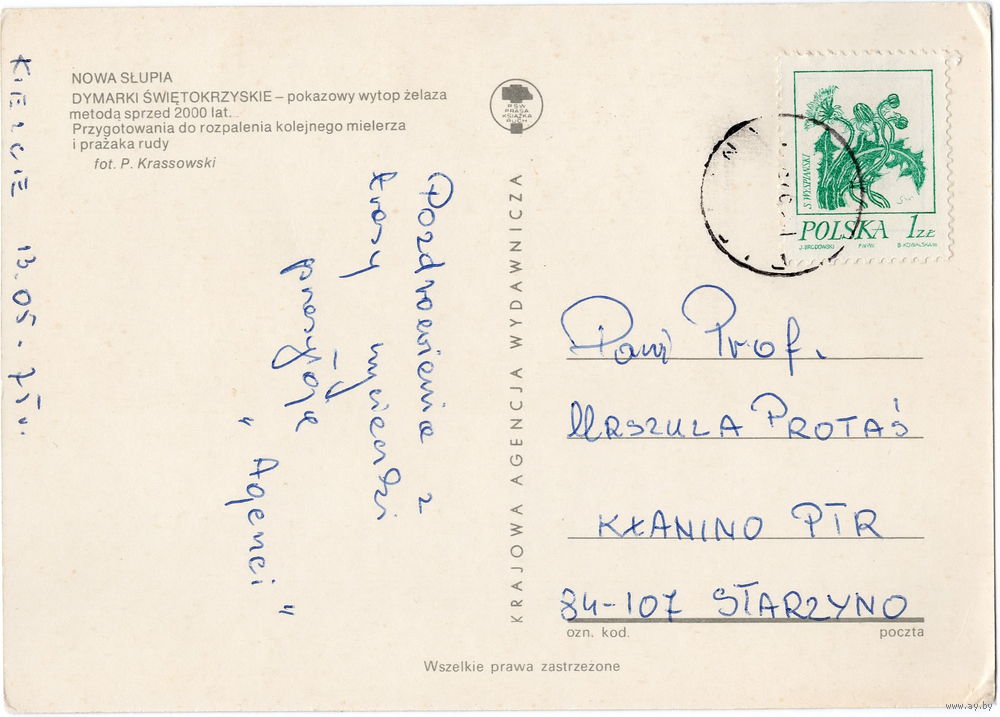 NOWA SŁUPIA
DYMARKI ŚWIĘTOKRZYSKIE – pokazowy wytop żelaza
metodą sprzed 2000 lat.
Przygotowania do rozpalenia kolejnego mielerza
i prażaka rudy
fot. P. Krassowski
KIELCE 13.05.75r.
Pozdrowienia z
trasy wycieczki
przesyłają
"Agenci"
KRAJOWA AGENCJA WYDAWNICZA
RSW
PRASA
KSIĄŻKA
RUCH
S. WYSPIAŃSKI
POLSKA 1ZŁ
J. BRODOWSKI PWPW B. KOWALSKA
Pani Prof.
URSZULA PROTAŚ
KŁANINO PTR
84-107 STARZYNO
ozn. kod. poczta
Wszelkie prawa zastrzeżone
www.ay.by